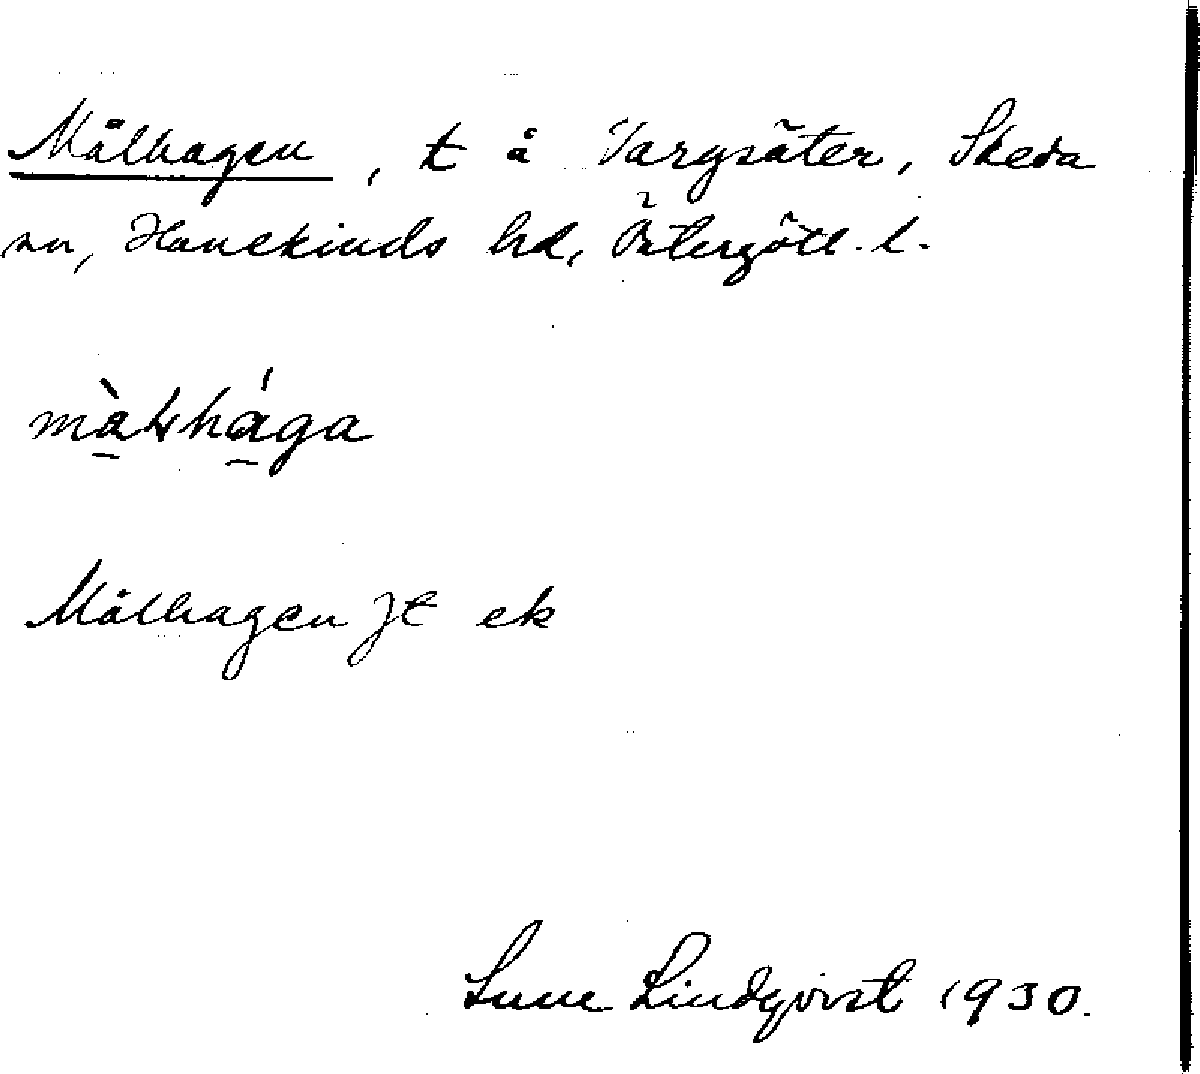 Målhagen, t å Vargsäter, Skeda
sn, Hanekinds hd, Östergötl. l.
màɫhága
Målhagen Jt ek
Sune Lindqvist 1930.